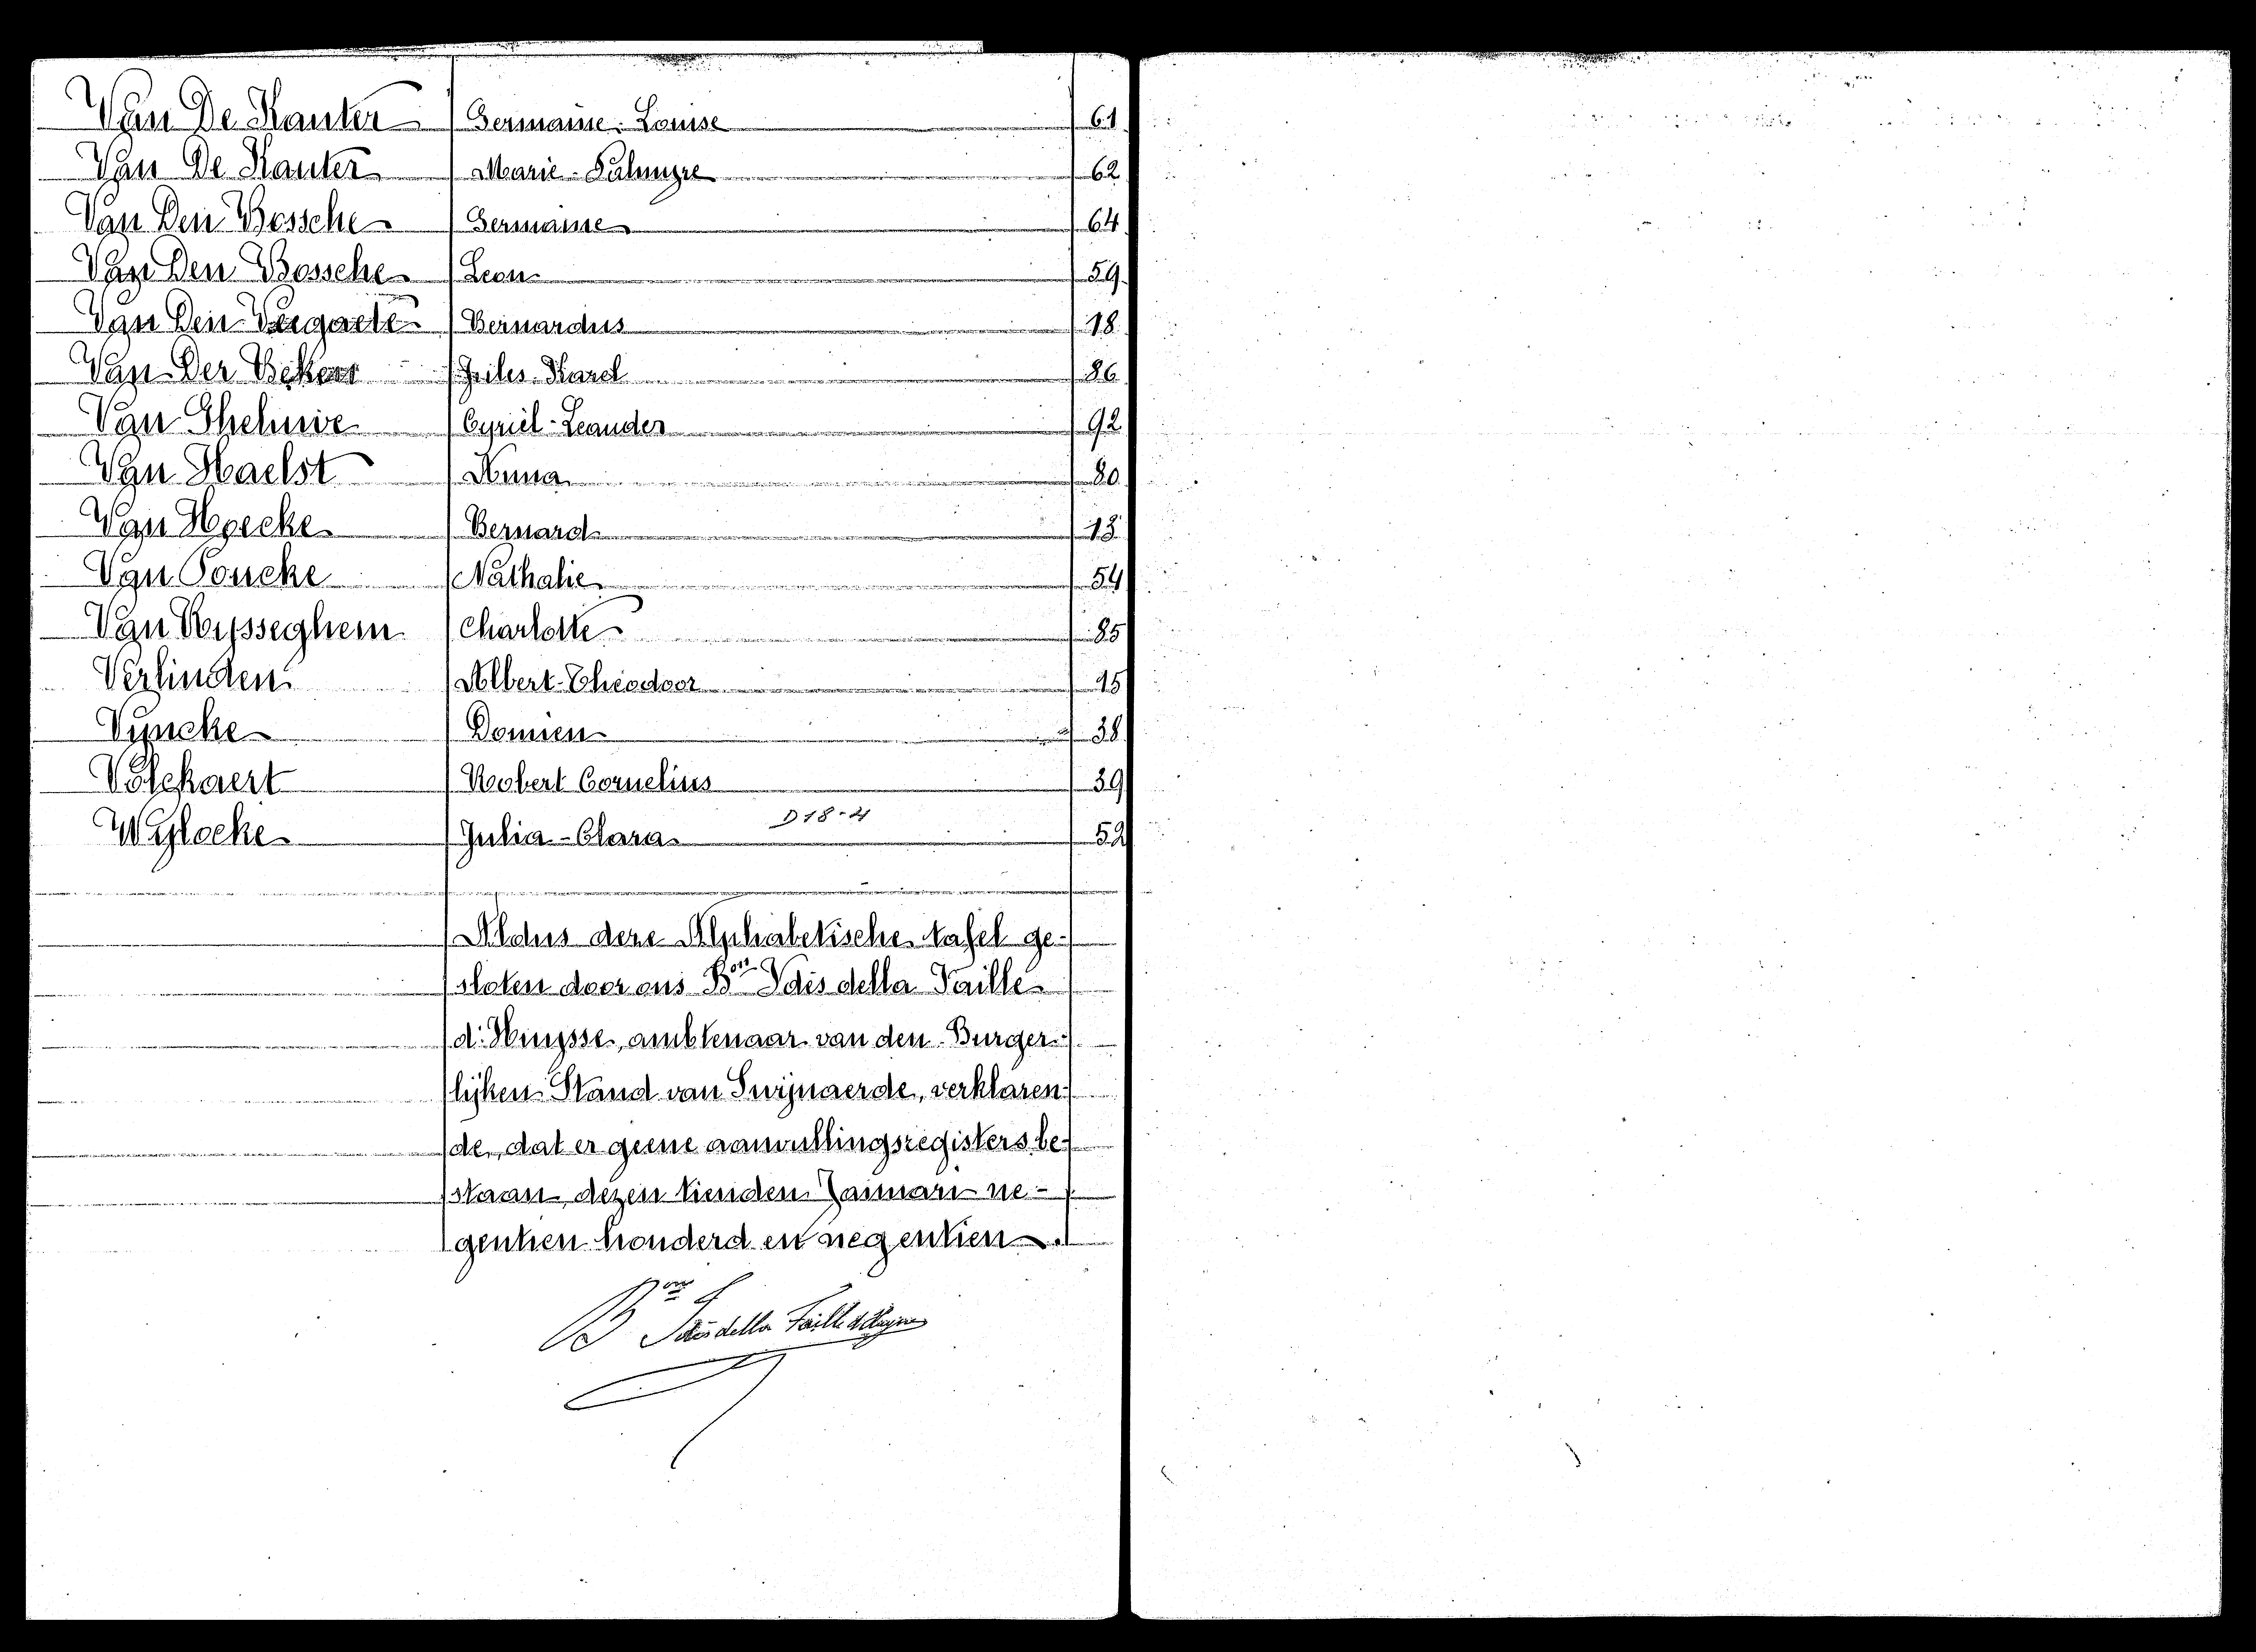 Van De Kauter Germaine-Louise 61
Van De Kauter Marie-Palmyre 62
Van Den Bossche Germaine 64
Van Den Bossche Leon 59
Van Den Bernardus 18
Van Der Karel 86
Van Cyriel-Leander 92
Van Haelst Anna 80
Van Hoecke Bernard 13
Van Poucke Nathalie 54
Van Rysseghem Charlotte 85
Verlinden Albert-Theodoor 15
Vyncke Domien 38
Volckaert Robert Cornelius 39
D 18-4
Wylocke Julia-Clara 52
Aldus deze Alphabetische tafel ge-
sloten door ons Bon della Faille
d'Huysse, ambtenaar van den Burger-
lijken Stand van Swijnaerde, verklaren-
de, dat er geene aanvullingsregisters be-
staan, dezen tienden Januari ne-
gentien honderd en negentien.
Bon della Faille d'Huysse